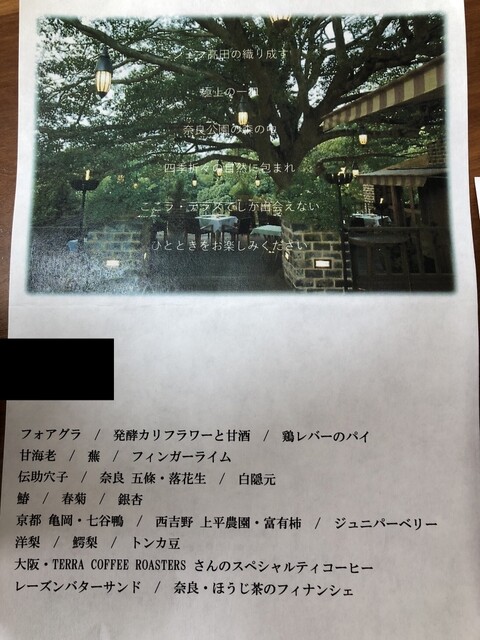 シェフ高田の織り成す
極上の一皿
奈良公園の森の中
四季折々の自然に包まれ
ここラ・テラスでしか出会えない
ひとときをお楽しみください
フォアグラ / 発酵カリフラワーと甘酒 / 鶏レバーのパイ
甘海老 / 蕪 / フィンガーライム
伝助穴子 / 奈良 五條・落花生 / 白隠元
鰆 / 春菊 / 銀杏
京都 亀岡・七谷鴨 / 西吉野 上平農園・富有柿 / ジュニパーベリー
洋梨 / 鰐梨 / トンカ豆
大阪・TERRA COFFEE ROASTERS さんのスペシャルティコーヒー
レーズンバターサンド / 奈良・ほうじ茶のフィナンシェ